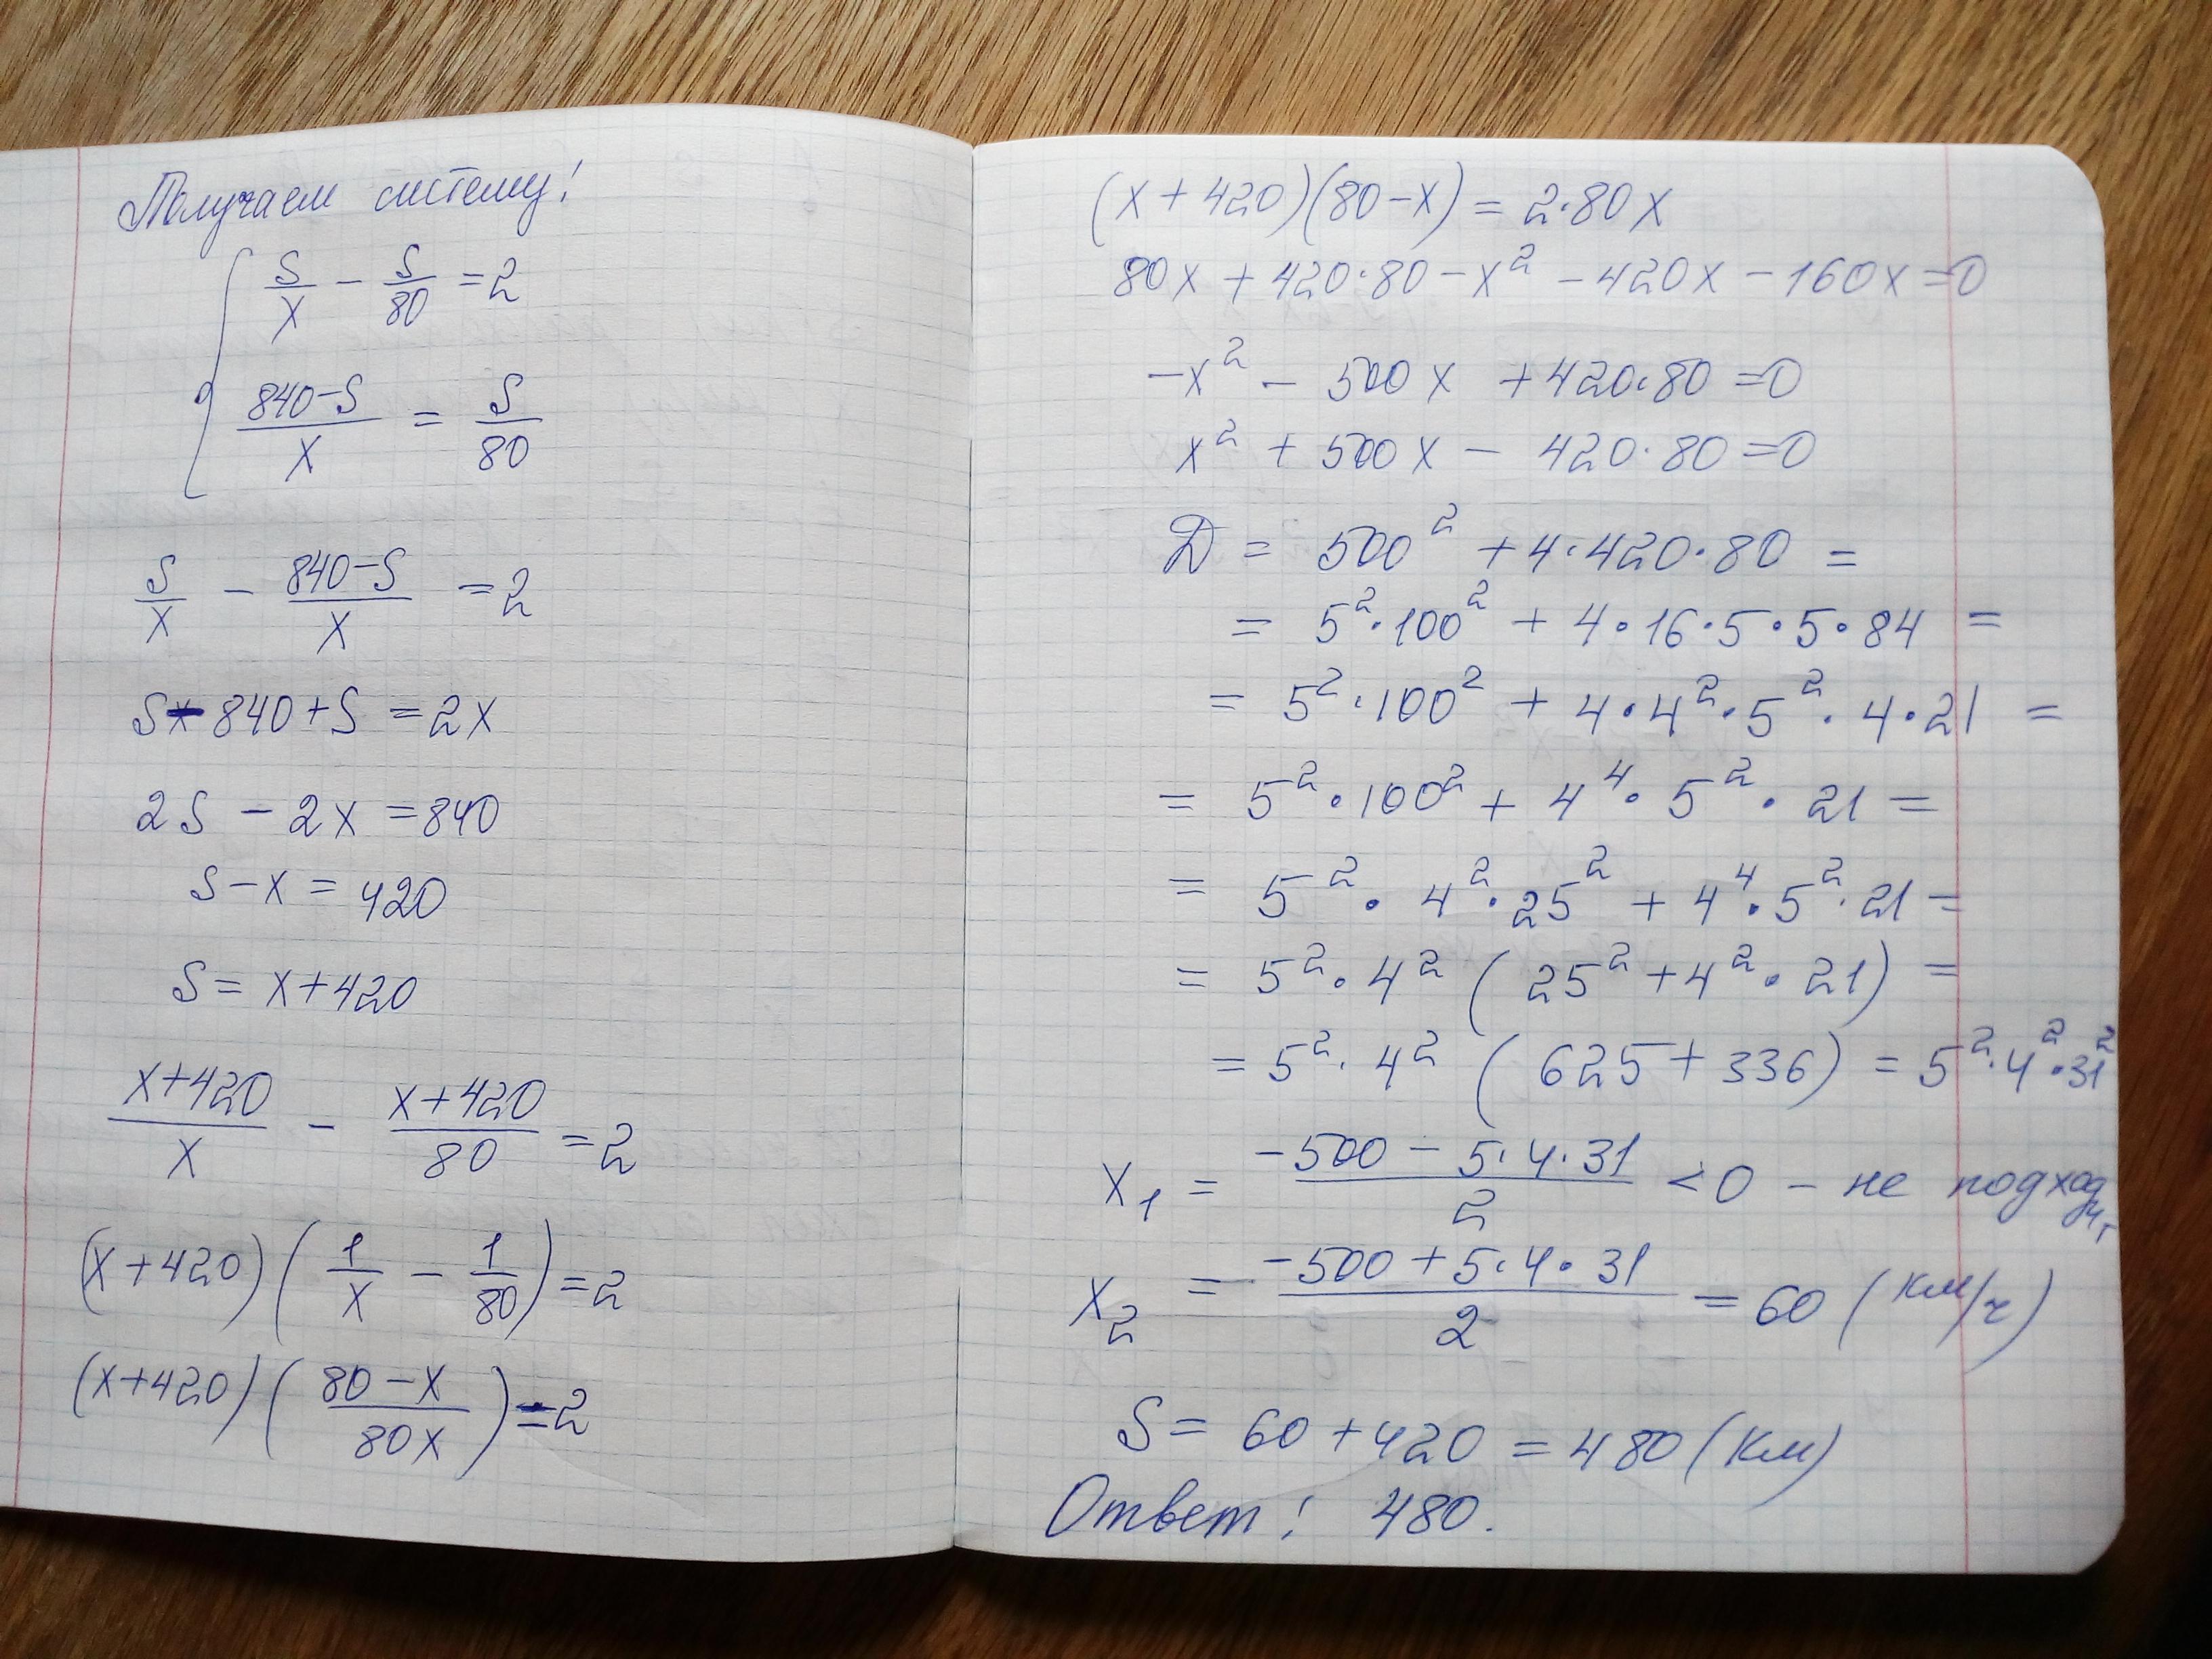 Получаем систему:
S/x - S/80 = 2
(840-S)/x = S/80
S/x - (840-S)/x = 2
S - 840 + S = 2x
2S - 2x = 840
S - x = 420
S = x + 420
(x+420)/x - (x+420)/80 = 2
(x+420)(1/x - 1/80) = 2
(x+420)((80-x)/(80x)) = 2
(x+420)(80-x) = 2·80x
80x + 420·80 - x² - 420x - 160x = 0
-x² - 500x + 420·80 = 0
x² + 500x - 420·80 = 0
D = 500² + 4·420·80 =
= 5²·100² + 4·16·5·5·84 =
= 5²·100² + 4·4²·5²·4·21 =
= 5²·100² + 4⁴·5²·21 =
= 5²·4²·25² + 4⁴·5²·21 =
= 5²·4²(25² + 4²·21) =
= 5²·4²(625 + 336) = 5²·4²·31²
x₁ = (-500 - 5·4·31)/2 < 0 - не подходит
x₂ = (-500 + 5·4·31)/2 = 60 (км/ч)
S = 60 + 420 = 480 (км)
Ответ: 480.